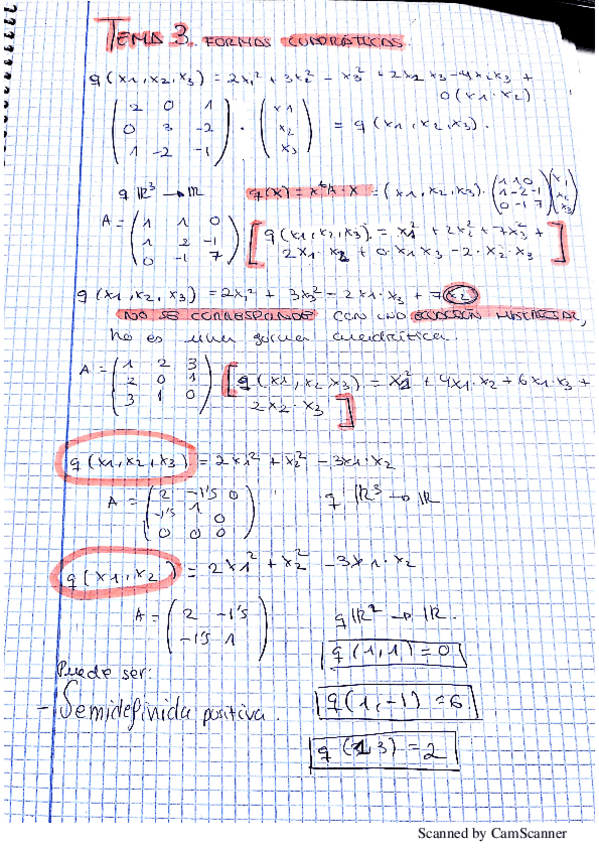 TEMA 3. FORMAS CUADRÁTICAS.
q(x1, x2, x3) = 2x1² + 3x2² - x3² + 2x1 x3 - 4x2x3 +
0(x1·x2)
(2 0 1
0 3 -2
1 -2 -1) · (x1
x2
x3) = q(x1, x2, x3).
q ℝ³ → ℝ q(x) = xᵗA·x = (x1, x2, x3)·(1 1 0
1 -2 -1
0 -1 7)(x1
x2
x3)
A = (1 1 0
1 2 -1
0 -1 7) [q(x1, x2, x3) = x1² + 2x2² + 7x3² +
2x1·x2 + 0·x1x3 - 2·x2·x3]
q(x1, x2, x3) = 2x1² + 3x3² - 2x1·x3 + 7x2
NO SE CORRESPONDE CON UNA ECUACIÓN MATRICIAL,
no es una forma cuadrática.
A = (1 2 3
2 0 1
3 1 0) [q(x1, x2 x3) = x1² + 4x1·x2 + 6x1·x3 +
2x2·x3]
q(x1, x2, x3) = 2x1² + x2² - 3x1·x2
A = (2 -1'5 0
-1'5 1 0
0 0 0) q ℝ³ → ℝ
q(x1, x2) = 2x1² + x2² - 3x1·x2
A = (2 -1'5
-1'5 1) q ℝ² → ℝ.
q(1,1) = 0
Puede ser:
- Semidefinida positiva. q(1,-1) = 6
q(1,3) = 2
Scanned by CamScanner